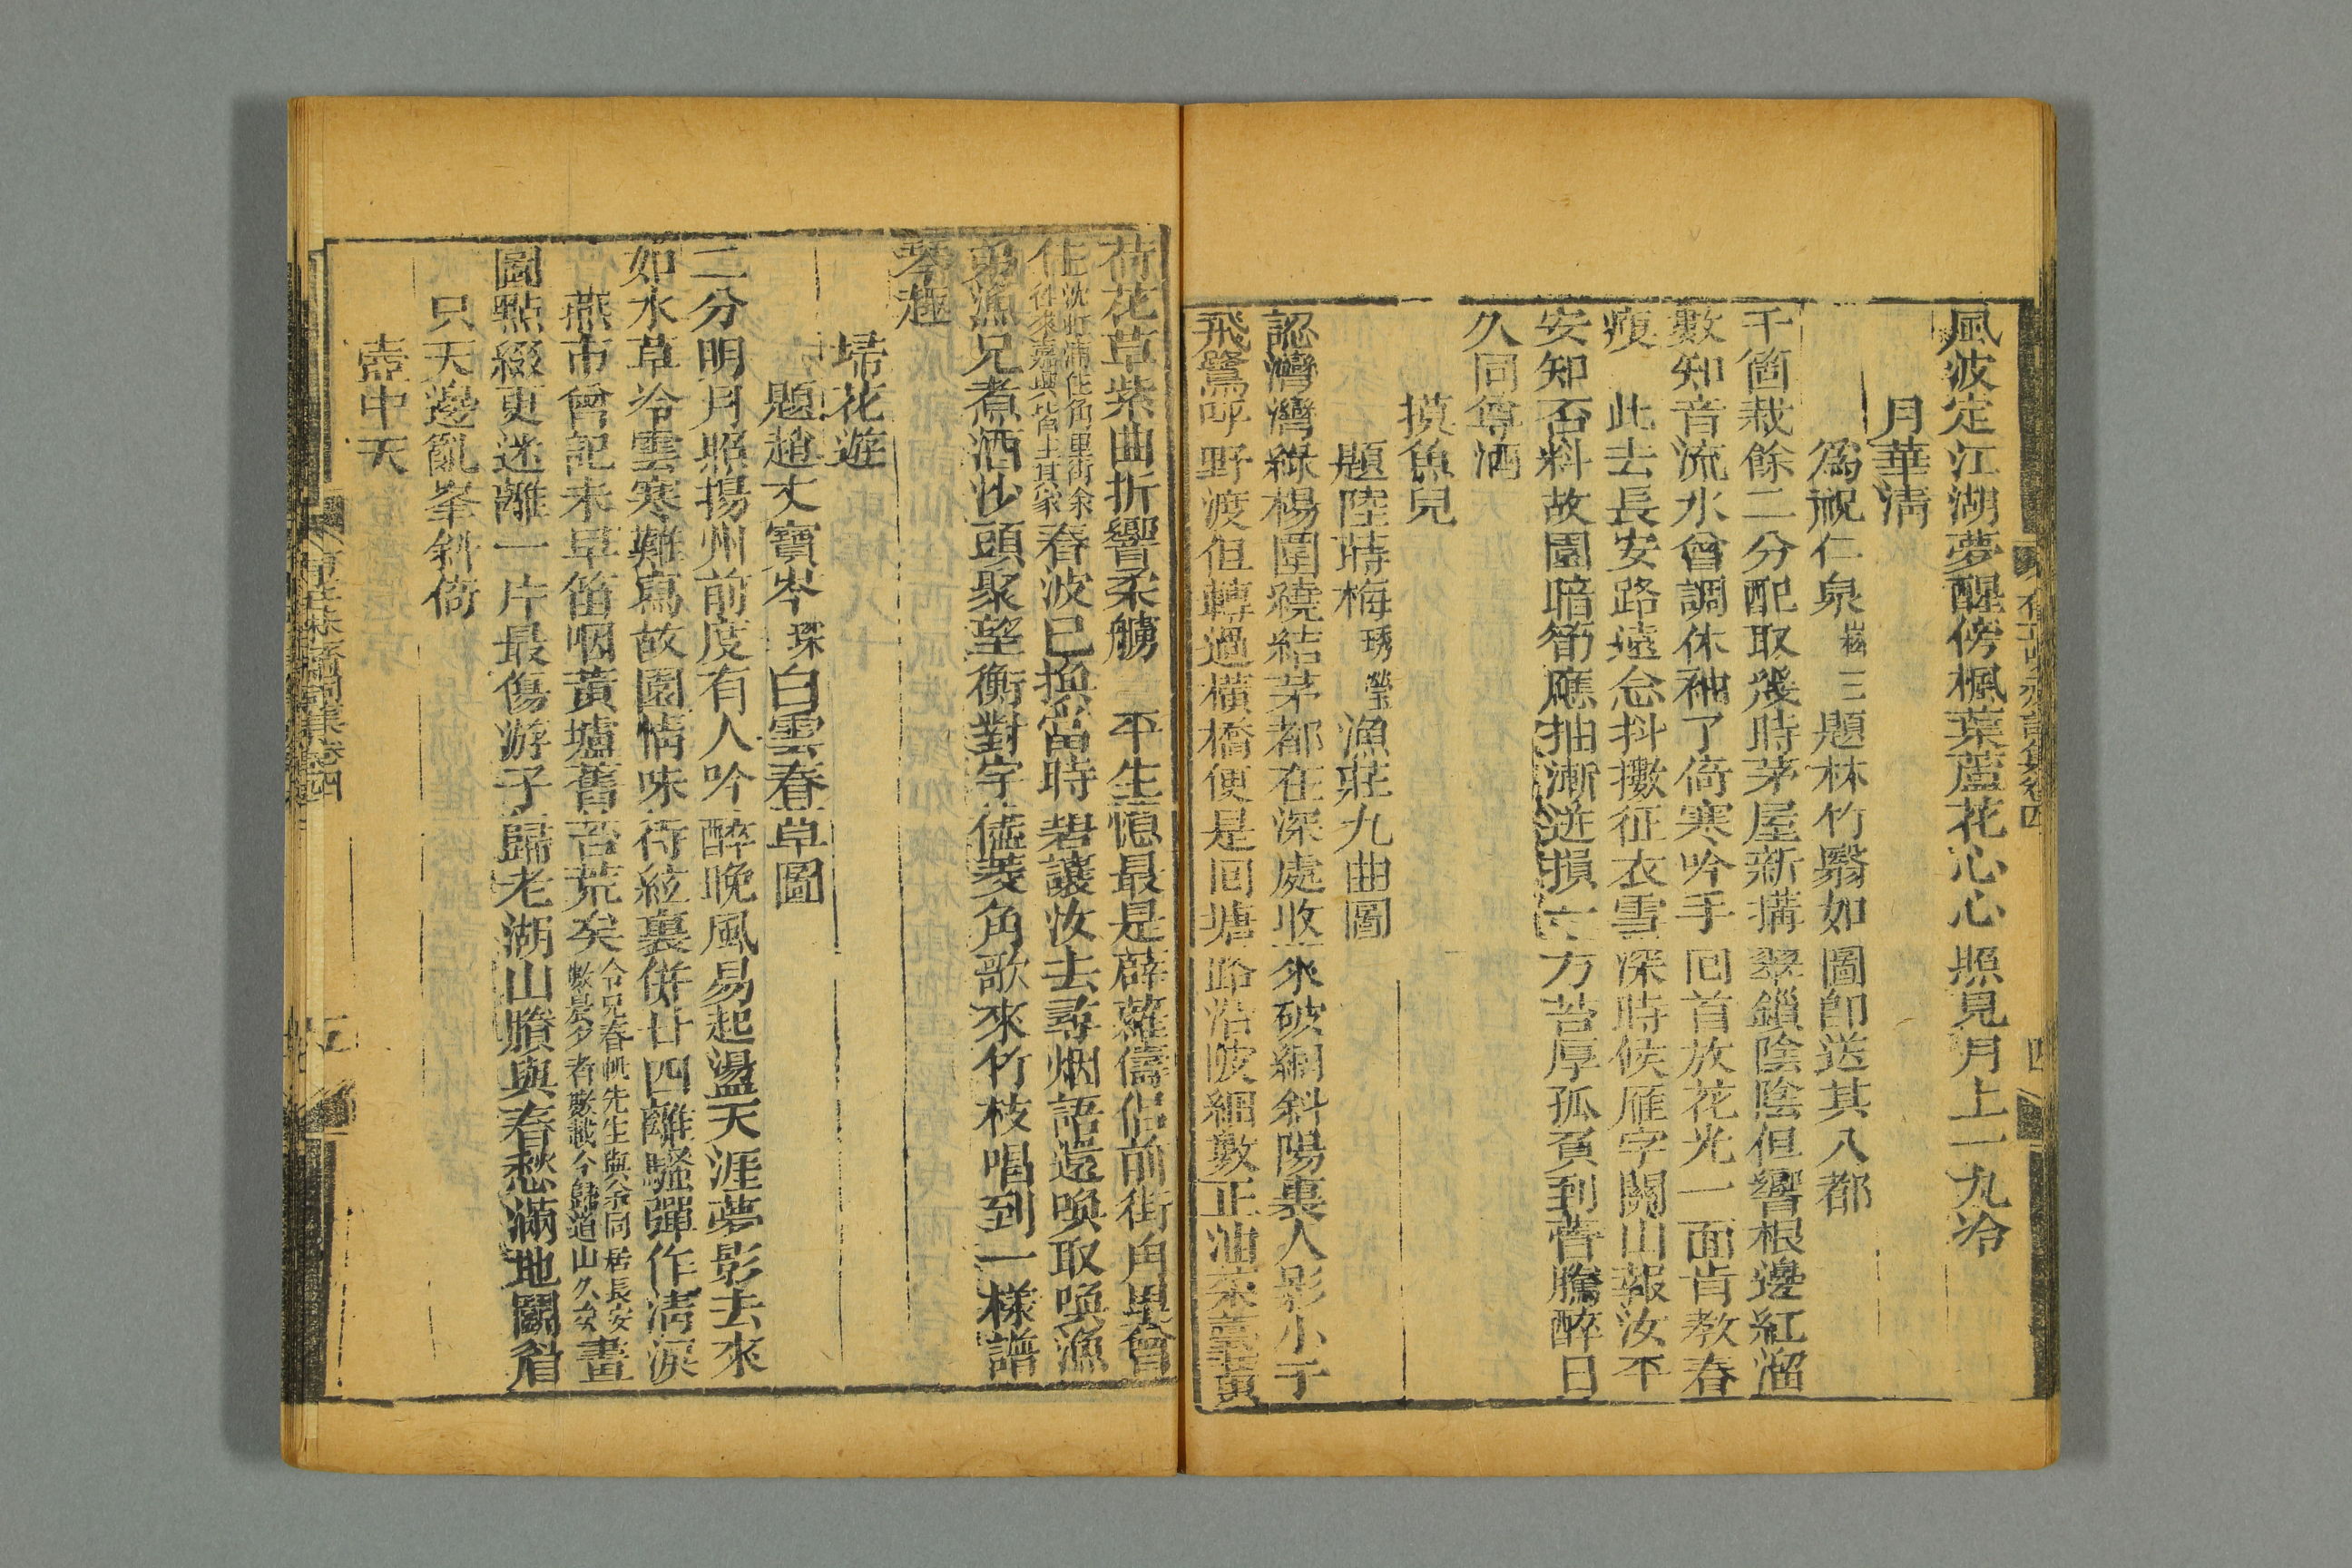 風波定江湖夢醒傍楓葉蘆花心心照見月上一九冷
月華清
為祝仁泉 三題林竹翳如圖即送其入都
千箇栽餘二分配取淺時茅屋新搆翠鎖陰陰但響根邊紅溜
數知音流水曾調休袖了倚寒吟手 回首放花光一面肯教春
瘦 此去長安路遠念抖擻征衣雪深時候雁字關山報汝平
安知否料故園暗筍應抽漸迸損一方苔厚孤負到瞢騰醉日
久同尊酒
摸魚兒
題陸蒔梅琇瑩漁莊九曲圖
認灣灣綠楊圍繞結茅都在深處收來破網斜陽裏人影小于
飛鷺呼野渡但轉過橫橋便是回塘路沿陂細數正油菜臺黃
荷花草紫曲折響柔艣 平生憶最是薜蘿儔侶前街甪里曾
住沈虹浦住甪里街余
科來嘉興皆主其家春波已換當時碧讓汝去尋烟語還喚取喚漁
弟漁兄煮酒沙頭聚望衡對宇儘菱角歌來竹枝唱到一樣譜
琴趣
埽花遊
題趙丈寶岑琛白雲春草圖
二分明月照揚州前度有人吟醉晚風易起盪天涯夢影去來
如水草冷雲寒難寫故園情味待絃裏併廿四離騷彈作清淚
燕市曾記未早笛咽黃壚舊苔荒矣令兄春帆先生與余同居長安
數晨夕者數載今歸道山久矣畫
圖點綴更迷離一片最傷游子歸老湖山賸與春愁滿地闌眉
只天邊亂峯斜倚
壼中天